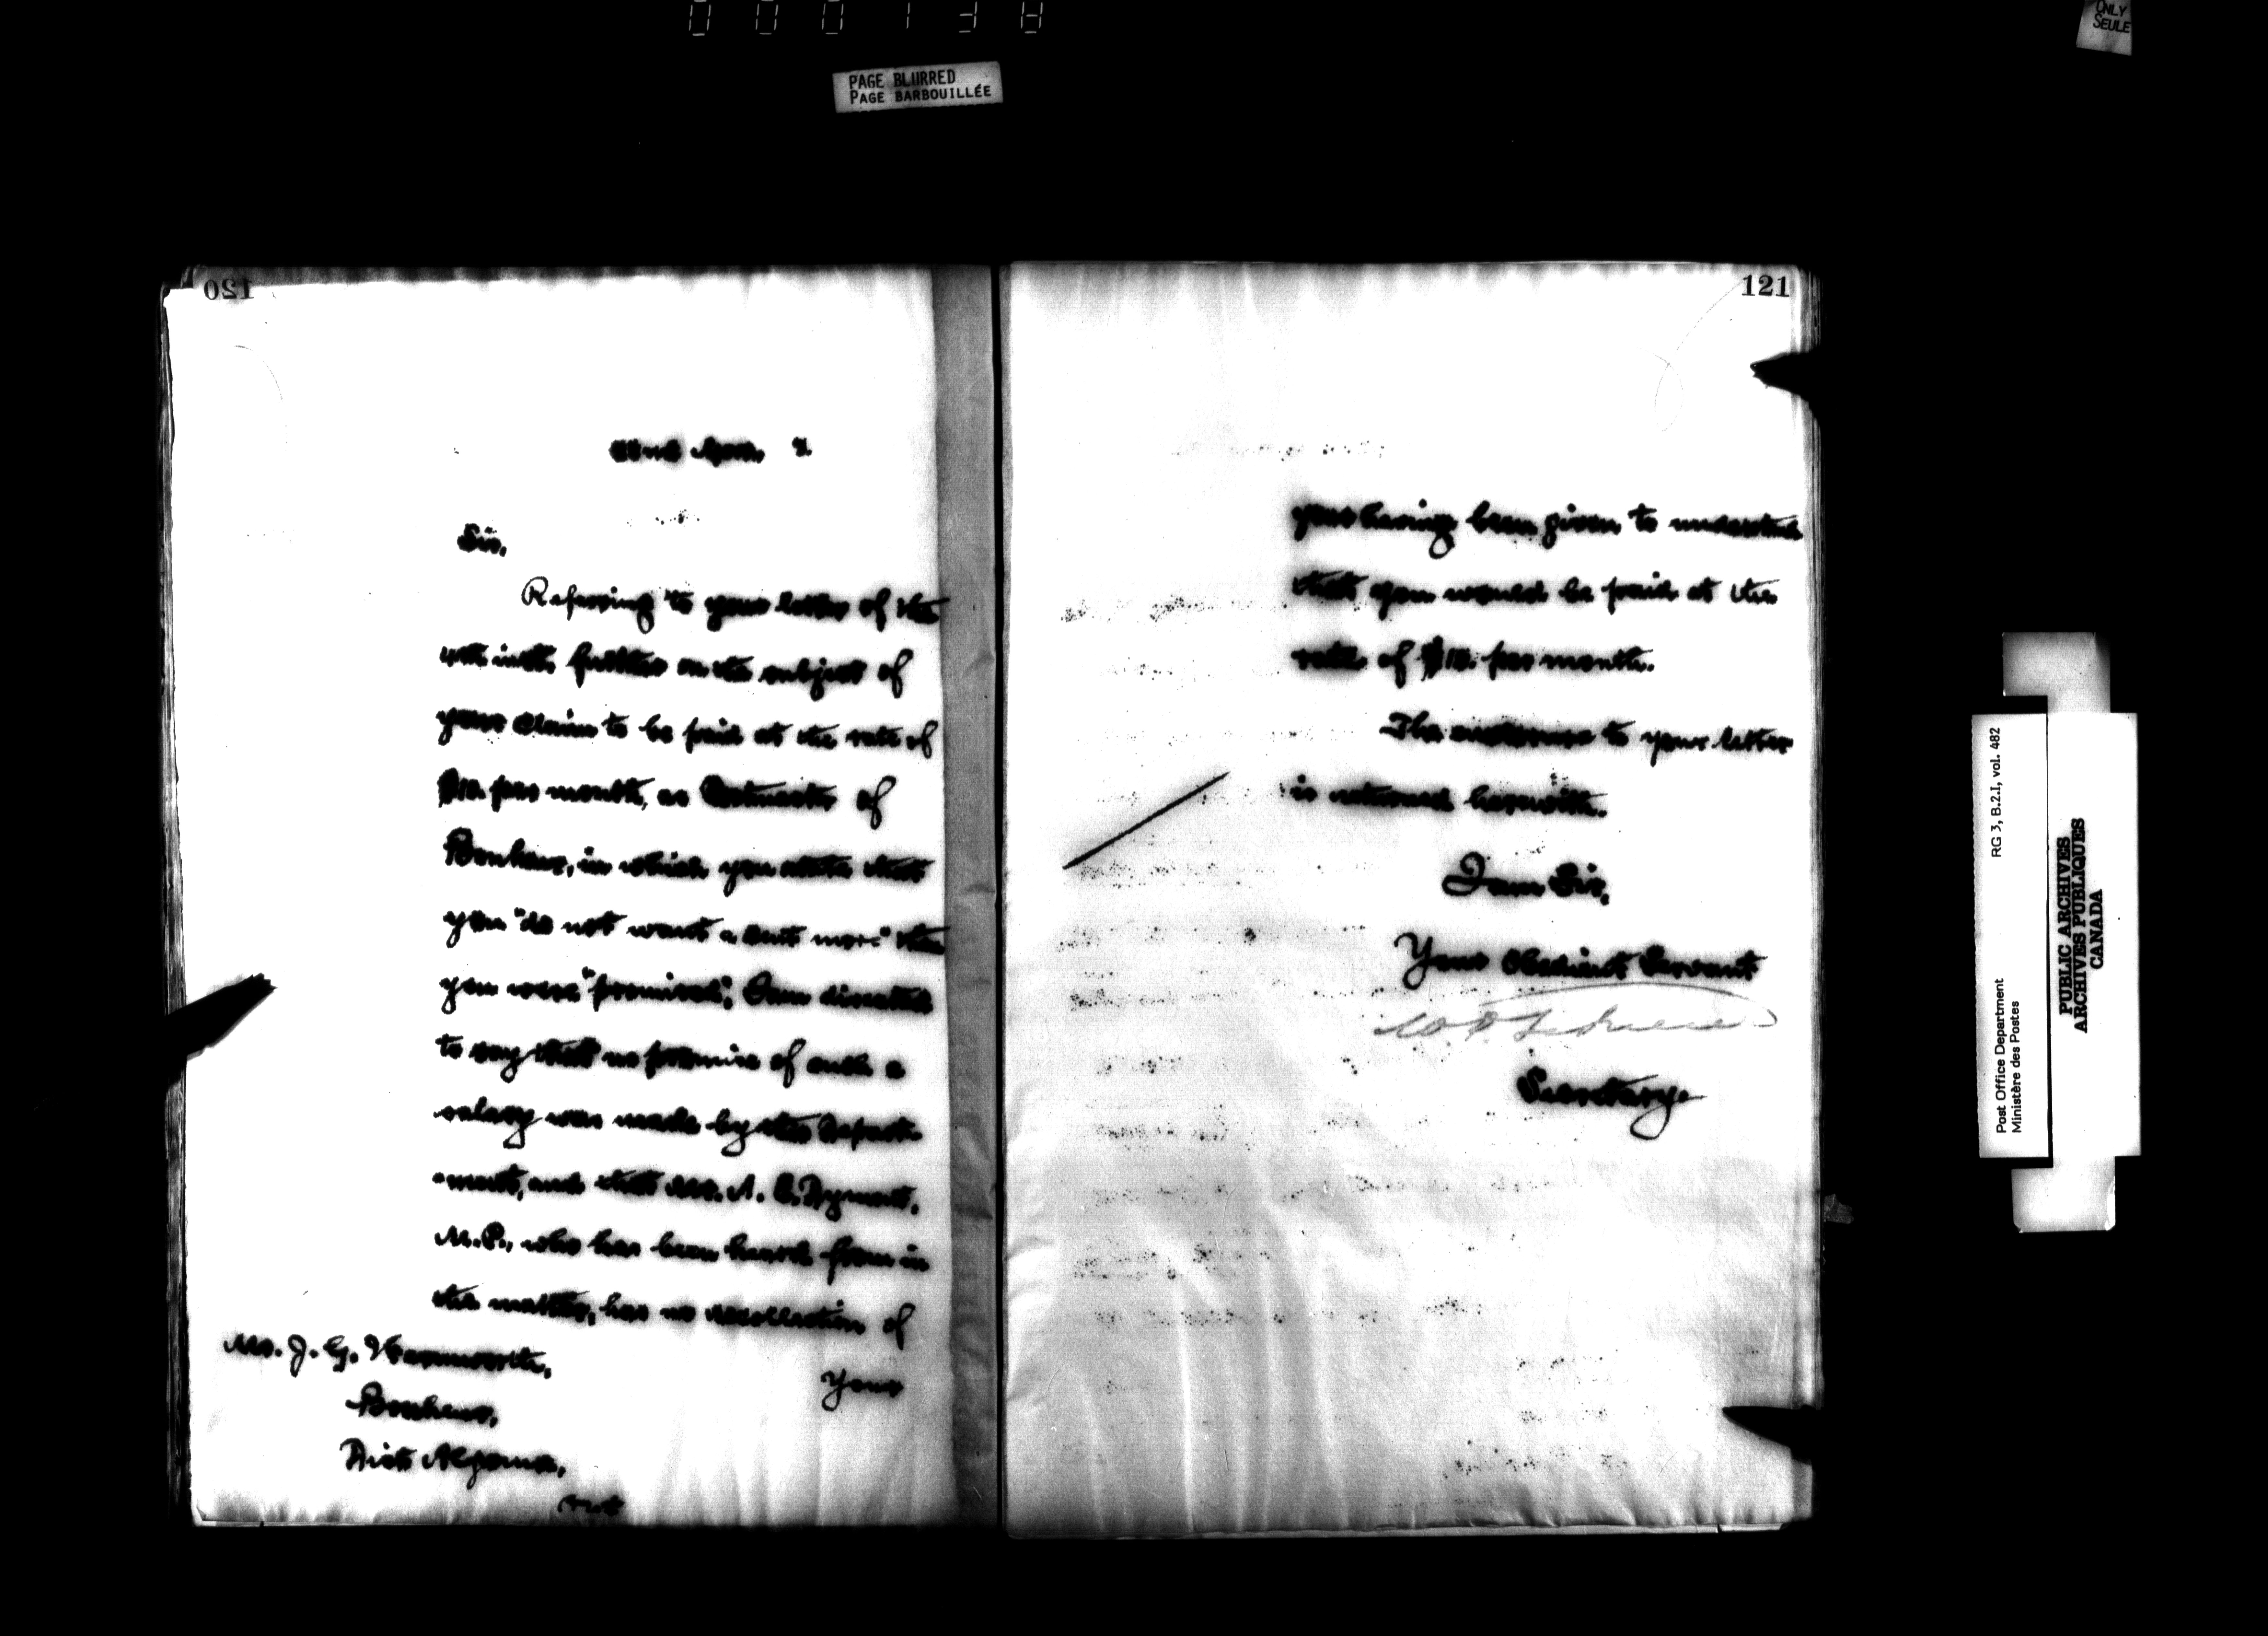 PAGE BLURRED
PAGE BARBOUILLÉE
ONLY
SEULE
120
22nd April, 2.
Sir,
Referring to your letter of the
inst. further on the subject of
your claim to be paid at the rate of
$10. per month, as Postmaster of
Bonheur, in which you state that
you "do not want a cent more" than
you were "promised", I am directed
to say that no promise of such a
salary was made by the Depart-
-ment, and that Mr. A. E. Dyment,
M.P., who has been heard from in
the matter, has no recollection of
your
Mr. J. G.
Bonheur,
Dist Algoma,
Ont
121
your having been given to understand
that you would be paid at the
rate of $10. per month.
The enclosure to your letter
is returned herewith.
I am Sir,
Your obedient Servant
Secretary.
Post Office Department
Ministère des Postes
RG 3, B.2.I, vol. 482
PUBLIC ARCHIVES
ARCHIVES PUBLIQUES
CANADA